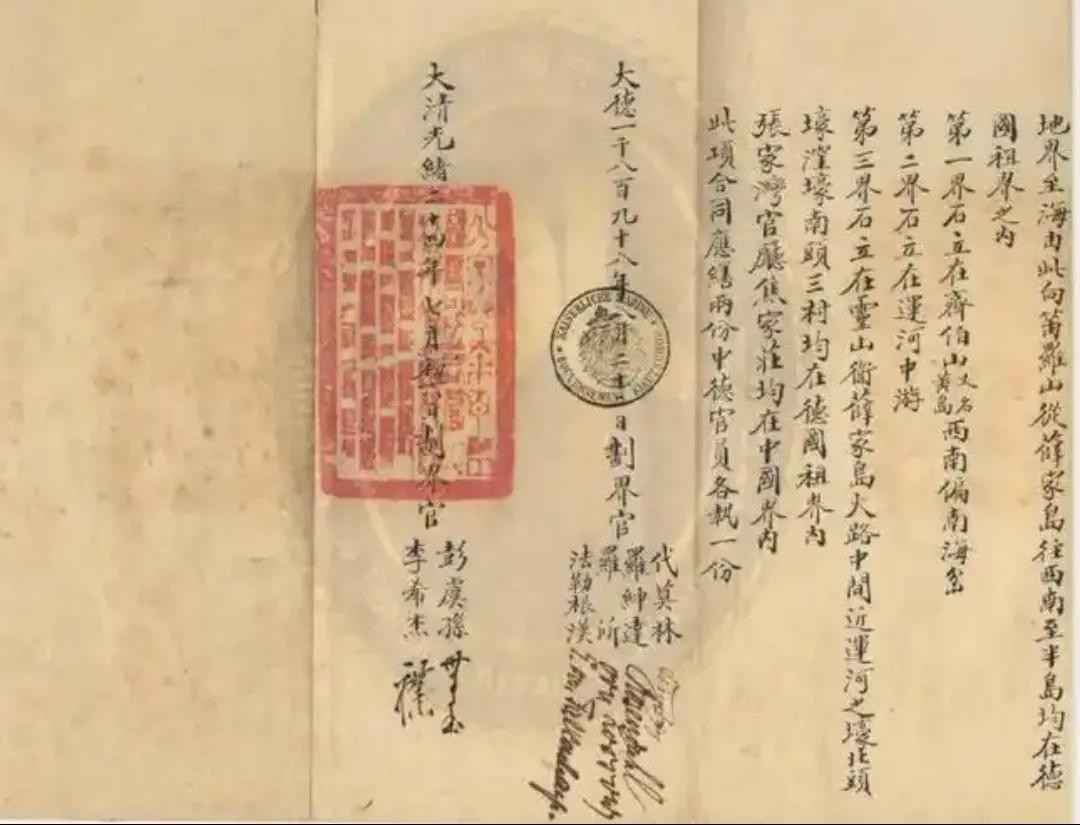 地界至海由此向笛羅山從薛家島往西南至半島均在德
國租界之內
第一界石立在齊伯山又名黃島西南偏南海岔
第二界石立在運河中游
第三界石立在靈山衛薛家島大路中間近運河之壕北頭
壕漥壕南頭三村均在德國租界內
張家灣官廳焦家莊均在中國界內
此項合同應繕兩份中德官員各執一份
大德一千八百九十八年八月二十 日劃界官
代莫林
羅紳達
羅所
法勒根漢
大清光緒二十四年七月 劃界官
彭虞孫
李希杰
KAISERLICHE MARINE